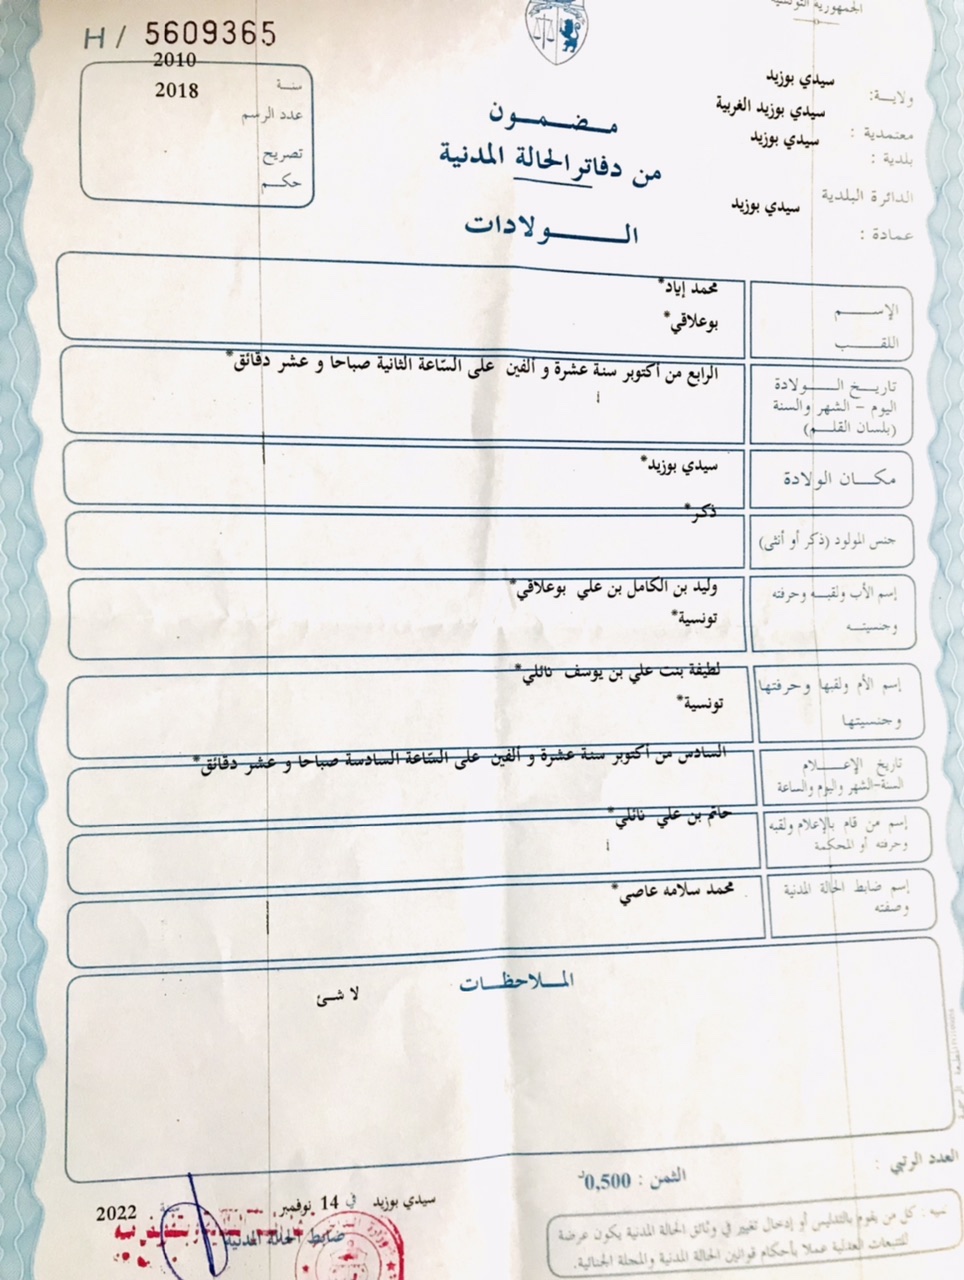 الجمهورية التونسية
H / 5609365
سنة 2010
عدد الرسم 2018
تصريح
حكم
ولاية: سيدي بوزيد
معتمدية : سيدي بوزيد الغربية
بلدية : سيدي بوزيد
الدائرة البلدية
عمادة : سيدي بوزيد
مضمون
من دفاتر الحالة المدنية
الولادات
الإسم محمد إياد*
اللقب بوعلاقي*
تاريخ الولادة
اليوم - الشهر والسنة
(بلسان القلم)
الرابع من أكتوبر سنة عشرة و ألفين على السّاعة الثانية صباحا و عشر دقائق*
مكان الولادة سيدي بوزيد*
جنس المولود (ذكر أو أنثى) ذكر*
إسم الأب ولقبه وحرفته
وجنسيته
وليد بن الكامل بن علي بوعلاقي*
تونسية*
إسم الأم ولقبها وحرفتها
وجنسيتها
لطيفة بنت علي بن يوسف نائلي*
تونسية*
تاريخ الإعلام
السنة-الشهر واليوم والساعة
السادس من أكتوبر سنة عشرة و ألفين على السّاعة السادسة صباحا و عشر دقائق*
إسم من قام بالإعلام ولقبه
وحرفته أو المحكمة
حاتم بن علي نائلي*
إسم ضابط الحالة المدنية
وصفته
محمد سلامه عاصي*
الملاحظات
لا شئ
العدد الرتبي :
الثمن : 0,500د
سيدي بوزيد في 14 نوفمبر سنة 2022
ضابط الحالة المدنية
تنبيه : كل من يقوم بالتدليس أو إدخال تغيير في وثائق الحالة المدنية يكون عرضة
للتتبعات العدلية عملا بأحكام قوانين الحالة المدنية والمجلة الجنائية.